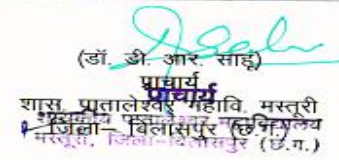 (डॉ. डी. आर. साहू)
प्राचार्य
प्राचार्य
शास. पातालेश्वर महावि. मस्तूरी
शासकीय पातालेश्वर महाविद्यालय
जिला- बिलासपुर (छ.ग.)
मस्तूरी, जिला-बिलासपुर (छ.ग.)